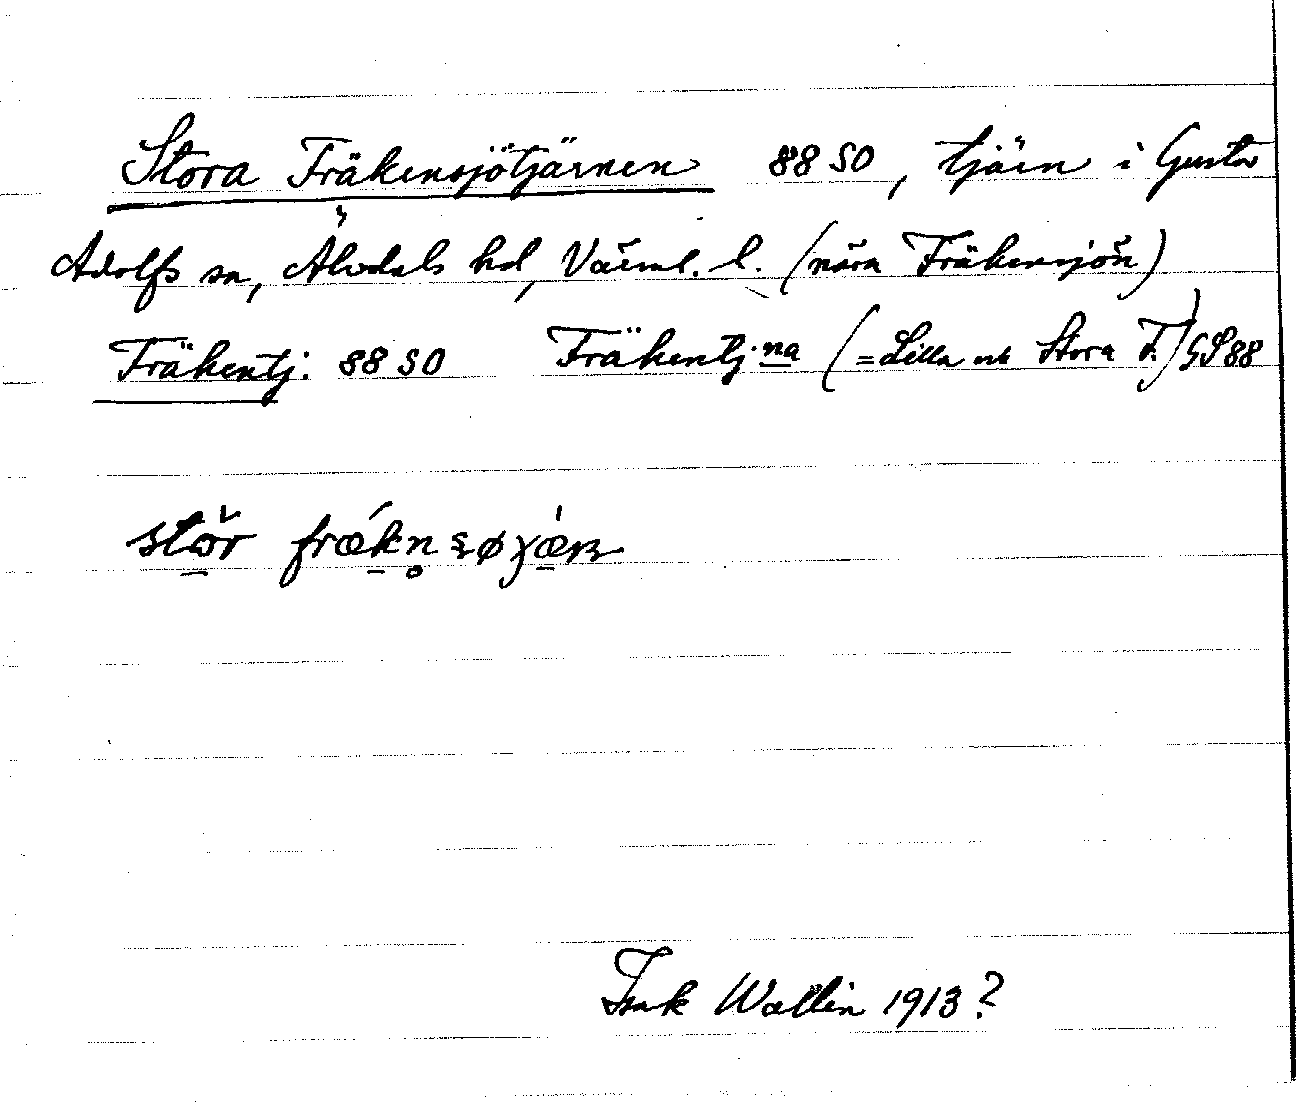 Stora Fräkensjötjärnen 88 SO, tjärn i Gustav
Adolfs sn, Älvdals hd, Värml. l. (nära Fräkensjön)
Fräkentj. 88 SO Fräkentj:na (= Lilla och Stora F.) GS 88
stor frækn̥søjæn
Isak Wallin 1913?